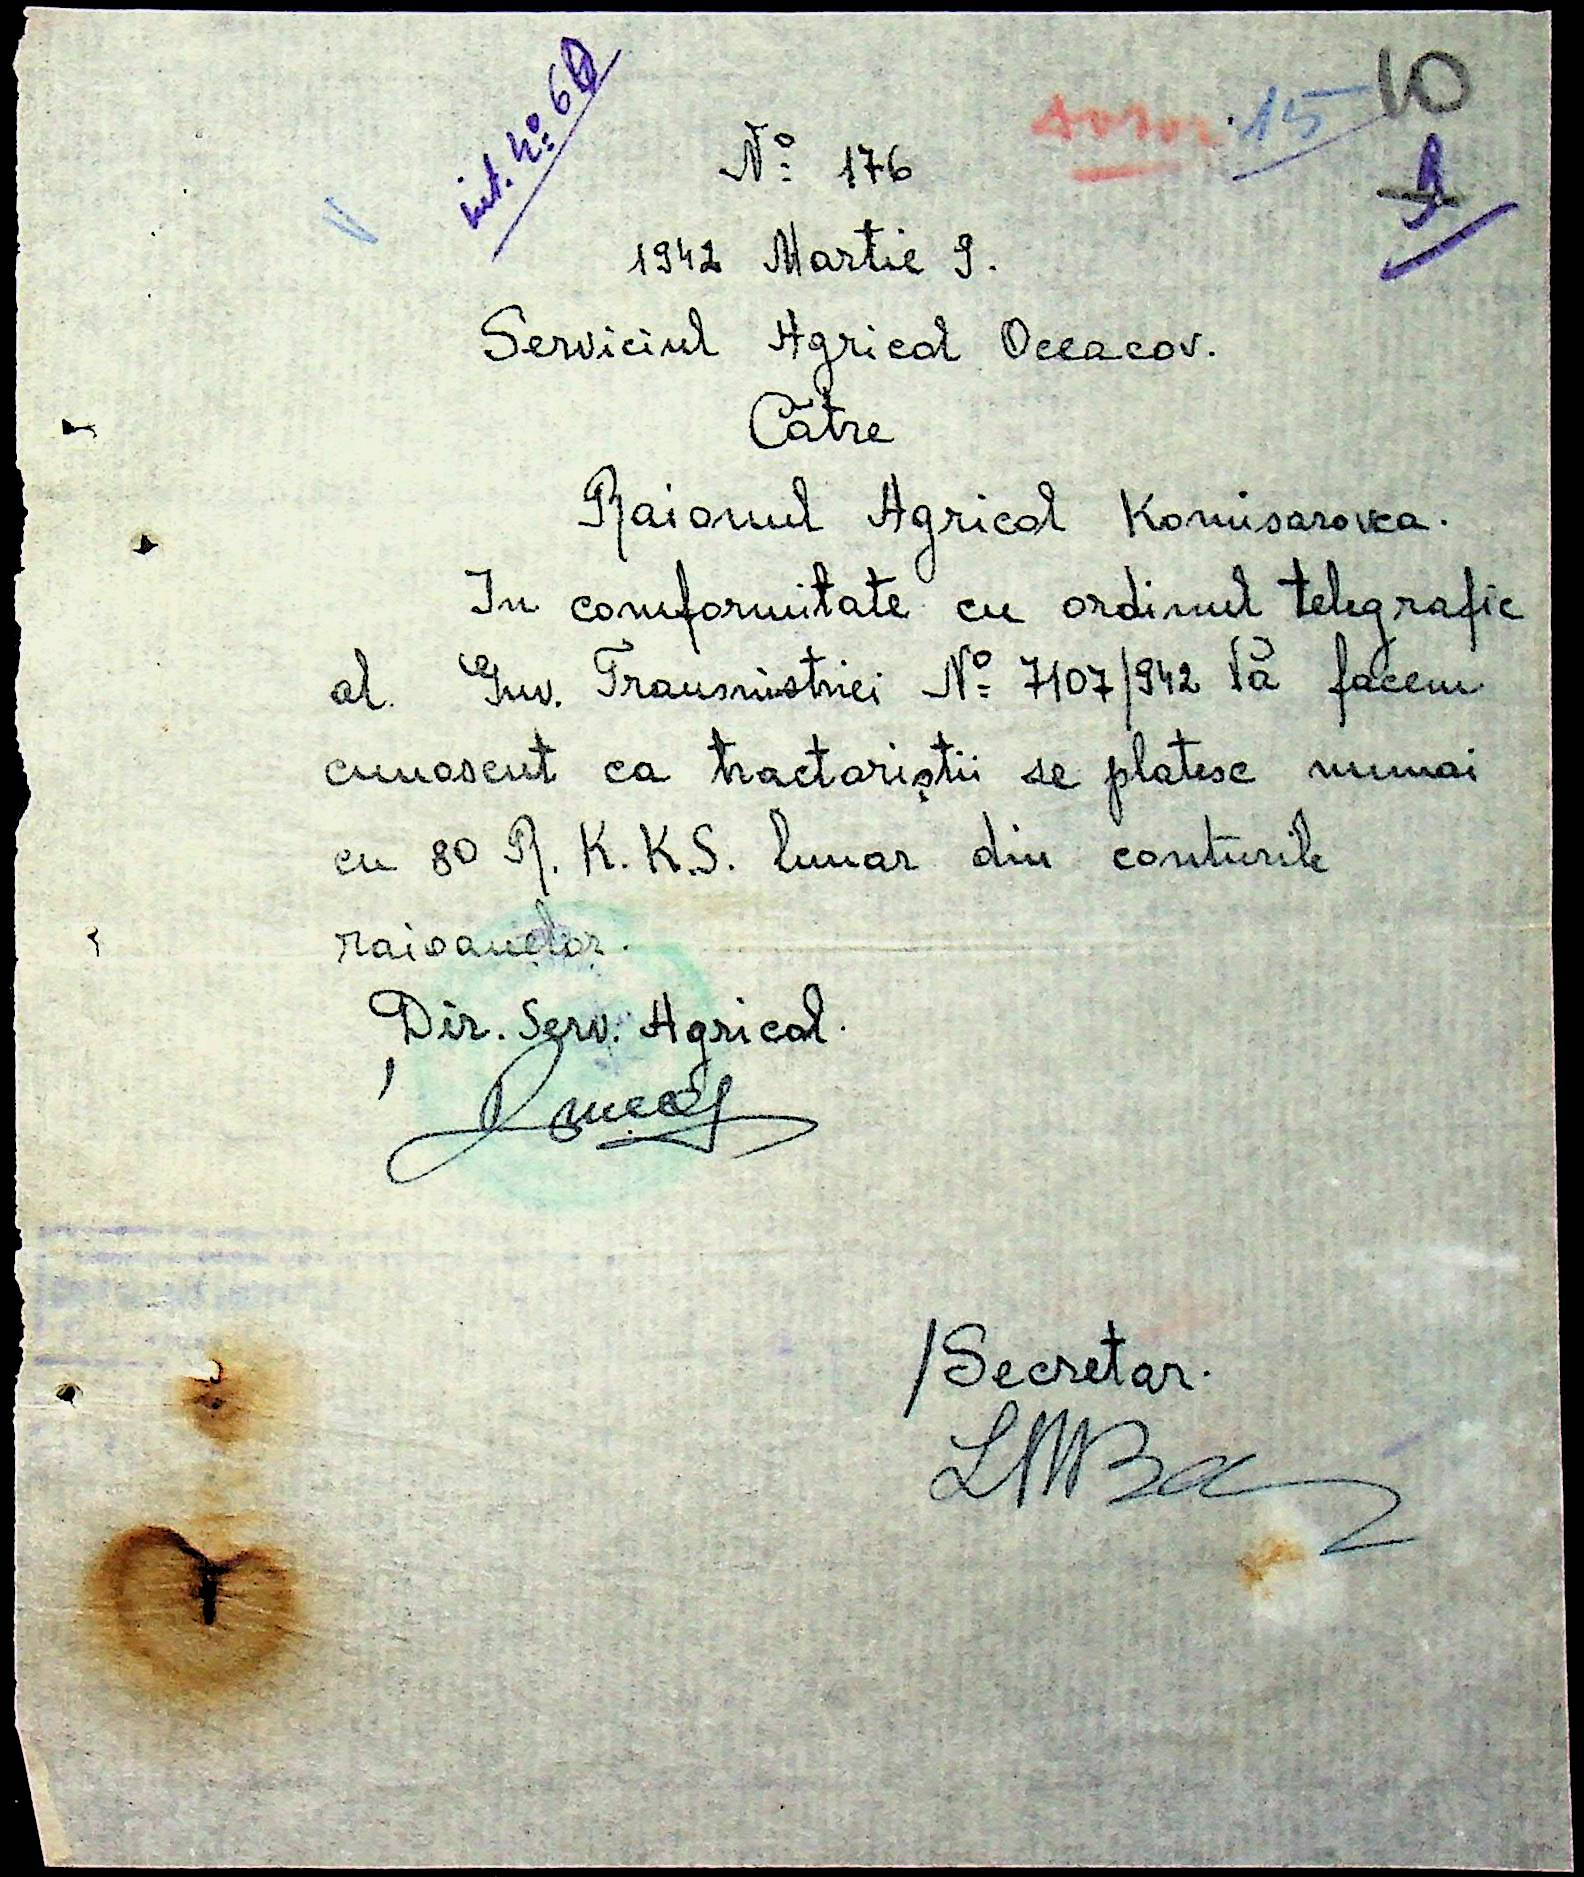 10
15
int. No 60
9
No 176
1942 Martie 9.
Serviciul Agricol Oceacov.
Cãtre
Raionul Agricol Komisarovca.
In comformitate cu ordinul telegrafic
al. Guv. Transnistriei No 7107/942 Vã facem
cunoscut ca tractoriștii se platesc numai
cu 80 R. K. K.S. lunar din conturile
raioanelor.
Dir. Serv. Agricol.
/Secretar.